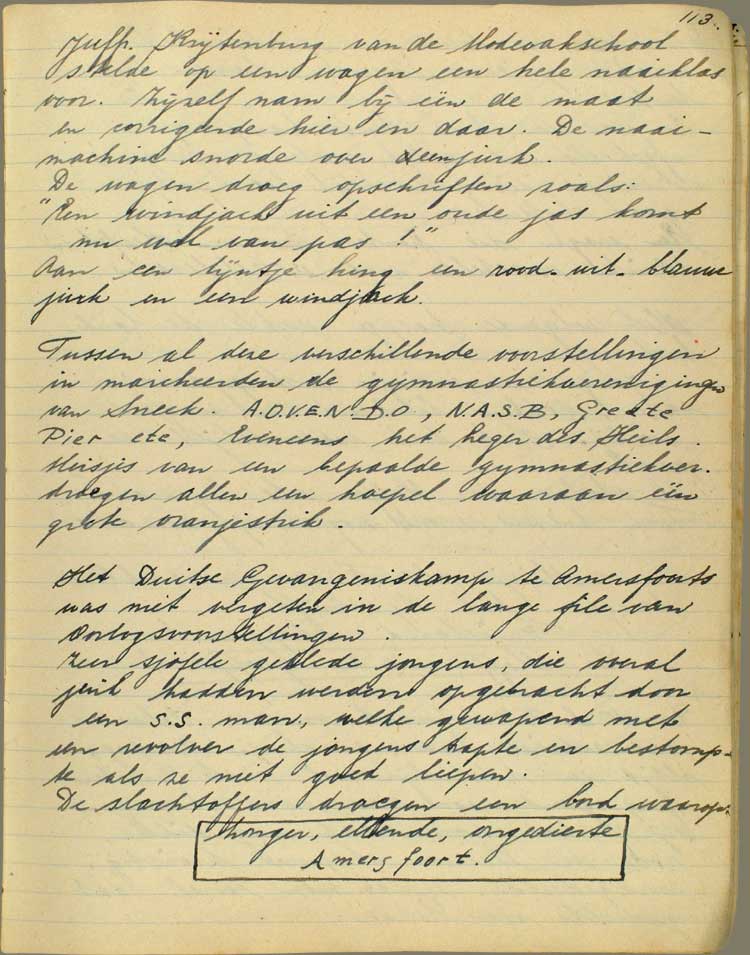 113.
Juffr. Krijtenburg van de Modevakschool
stelde op een wagen een hele naaiklas
voor. Zijzelf nam bij één de maat
en corrigeerde hier en daar. De naai-
machine snorde over een jurk.
De wagen droeg opschriften zoals:
"Een windjack uit een oude jas komt
nu wel van pas!"
Aan een lijntje hing een rood-wit-blauwe
jurk en een windjack.
Tussen al deze verschillende voorstellingen
in marcheerden de gymnastiekverenigingen
van Sneek. A.D.V.E.N.D.O, N.A.S.B, Greate
Pier etc, Eveneens het Leger des Heils.
Meisjes van een bepaalde gymnastiekver.
droegen allen een hoepel waaraan één
grote oranjestrik.
Het Duitse Gevangeniskamp te Amersfoorts
was niet vergeten in de lange file van
oorlogsvoorstellingen.
Zeer sjofele geklede jongens, die vooral
jeuk hadden werden opgebracht door
een S.S. man, welke gewapend met
een revolver de jongens trapte en bestomp-
te als ze niet goed liepen.
De slachtoffers droegen een bord waarop:
honger, ellende, ongedierte
Amersfoort.